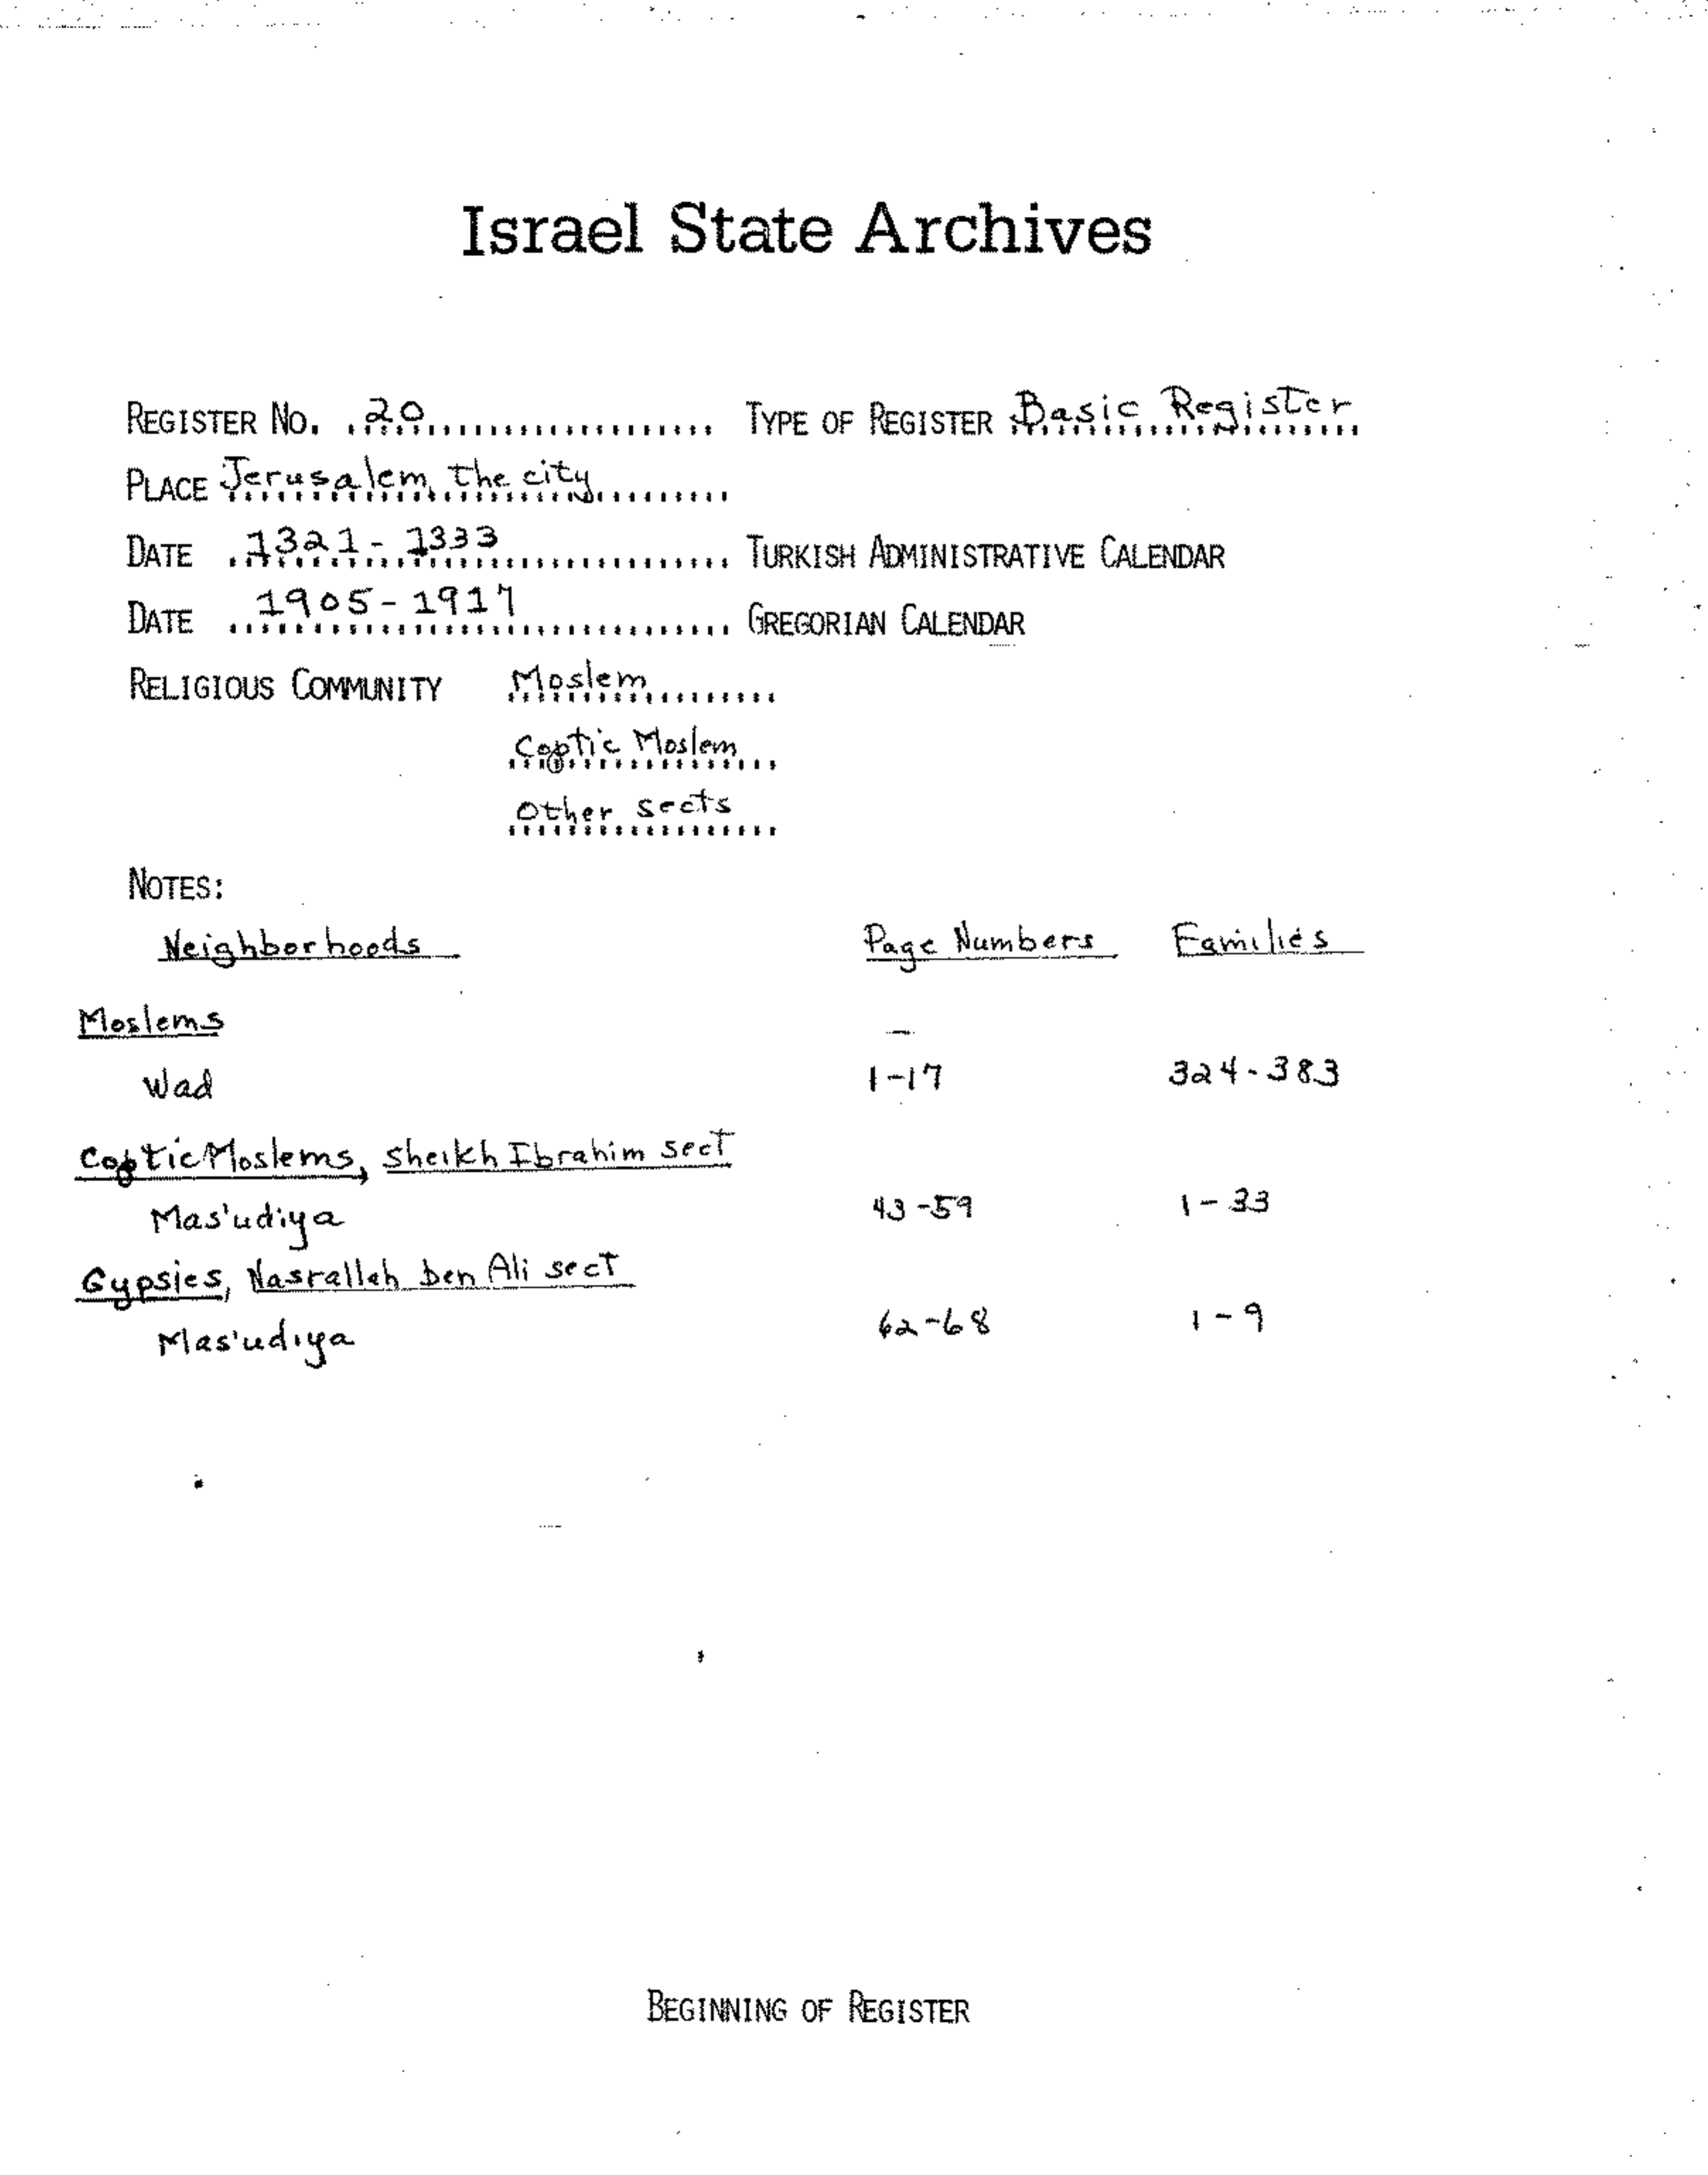 Israel State Archives
REGISTER NO. 20 TYPE OF REGISTER Basic Register
PLACE Jerusalem, the city
DATE 1321-1333 TURKISH ADMINISTRATIVE CALENDAR
DATE 1905-1917 GREGORIAN CALENDAR
RELIGIOUS COMMUNITY Moslem
Coptic Moslem
Other sects
NOTES:
Neighborhoods Page Numbers Families
Moslems
Wad 1-17 324-383
Coptic Moslems, Sheikh Ibrahim sect
Mas'udiya 43-59 1-33
Gypsies, Nasrallah ben Ali sect
Mas'udiya 62-68 1-9
BEGINNING OF REGISTER